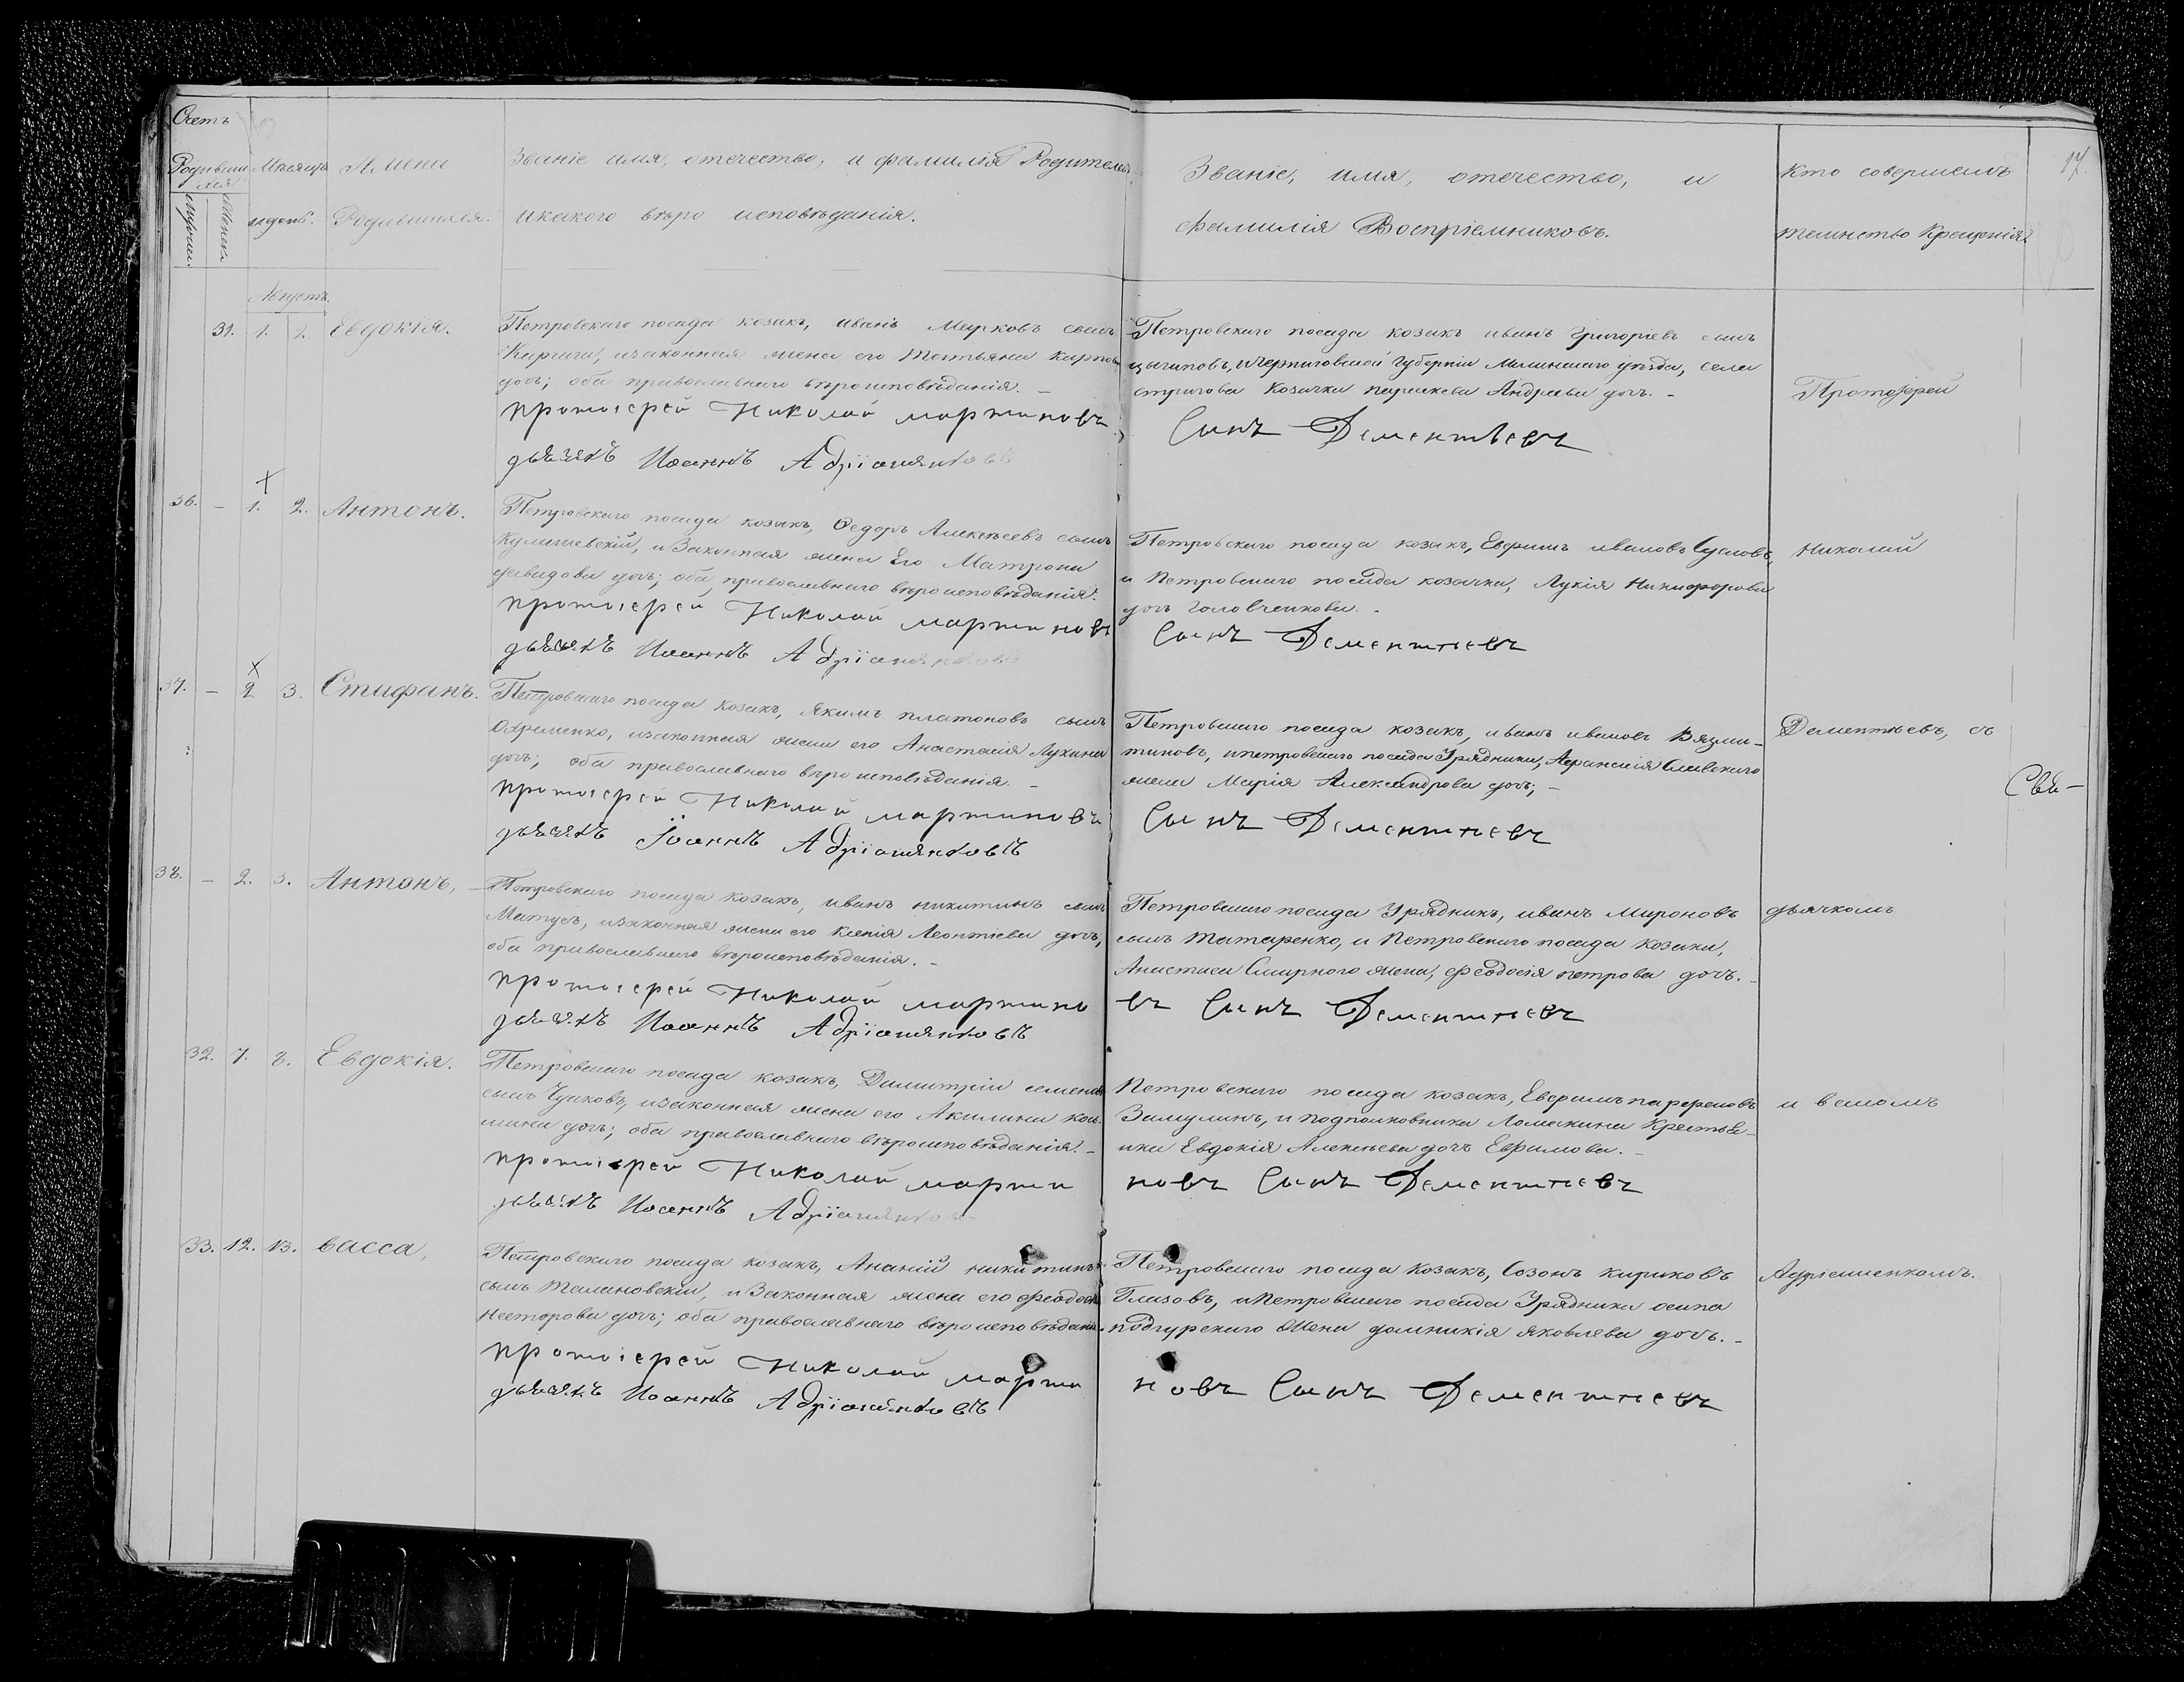 Счетъ
Родивши Мѣсяцъ Имена Званіе имя, отечество, и фамилія Родителей Званіе, имя, отечество, и Кто совершалъ 17.
хся
идень. Родившихся. икакого вѣро исповѣданія. фамилія Воспріемниковъ. таинство Крещенія.
Августъ.
31. 1. 2. Евдокія. Петровскаго посада козакъ, иванъ Марковъ сынъ
изаконная жена его Татьяна
дочь; оба православнаго вѣроисповѣданія. –
протоіерей Николай мартиновъ
дьячкъ Иоаннъ Адріаменковъ
Петровскаго посада козакъ иванъ Григорьевъ сынъ
цыгановъ, ичерниговской губерніи уѣзда, села
Козачка параскева Андреева дочь. –
Сынъ Дементьевъ
Протоіерей
36. – 1. 2. Антонъ. Петровскаго посада козакъ, Федоръ Алексѣевъ сынъ
Кулишевскій, иЗаконная жена Его Матрона
давидова дочь; оба православнаго вѣроисповѣданія.
протоіерей Николай мартиновъ
дьячкъ Иоаннъ Адріаменковъ
Петровскаго посада козакъ, Ефимъ ивановъ
и Петровскаго посада козачка, Лукія Никифорова
дочь Головченкова. –
Сынъ Дементьевъ
Николай
37. – 2 3. Стифанъ. Петровскаго посада Козакъ, Якимъ платоновъ сынъ
изаконная жена его Анастасія Лукина
дочь; оба православнаго вѣро исповѣданія. –
протоіерей Николай мартиновъ
дьячкъ Іоаннъ Адріаменковъ
Петровскаго посада козакъ, иванъ ивановъ Вязми-
тиновъ, ипетровскаго посада Урядника, Афанасія Славскаго
жена Марія Александрова дочь; –
Сынъ Дементьевъ
Дементьевъ, съ
Свя-
38. – 2. 3. Антонъ, Петровскаго посада козакъ, иванъ никитинъ сынъ
Матусъ, изаконная жена его Ксенія Леонтіева дочь,
оба православнаго вѣроисповѣданія. –
протоіерей Николай мартино
дьячкъ Иоаннъ Адріаменковъ
Петровскаго посада Урядникъ, иванъ Мироновъ
сынъ Татаренко, и Петровскаго посада козака,
Смирного жена, феодосія петрова дочь. –
въ Сынъ Дементьевъ
дьячкомъ
32. 7. 8. Евдокія. Петровскаго посада козакъ, Димитрій семеновъ
сынъ изаконная жена его Акилина кос-
мина дочь; оба православнаго вѣроисповѣданія. –
протоіерей Николай марти
дьячкъ Иоаннъ Адріаменковъ
Петровскаго посада козакъ, Ефимъ парфеновъ
Замулинъ, и подполковника Ломакина Крестья-
нка Евдокія Алексѣева дочь Ефимова. –
новъ Сынъ Дементьевъ
Иваномъ
33. 12. 13. васса, Петровскаго посада козакъ, Ананій никитинъ
сынъ Талановскій, иЗаконная жена его феодосія
Несторова дочь; оба православнаго вѣроисповѣданія.
протоіерей Николай марти
дьячкъ Иоаннъ Адріаменковъ
Петровскаго посада Козакъ, Созонъ кириковъ
Глизовъ, иПетровскаго посада Урядника осипа
подгурскаго Жена домникія яковлева дочь. –
новъ Сынъ Дементьевъ
Адріаменкомъ.